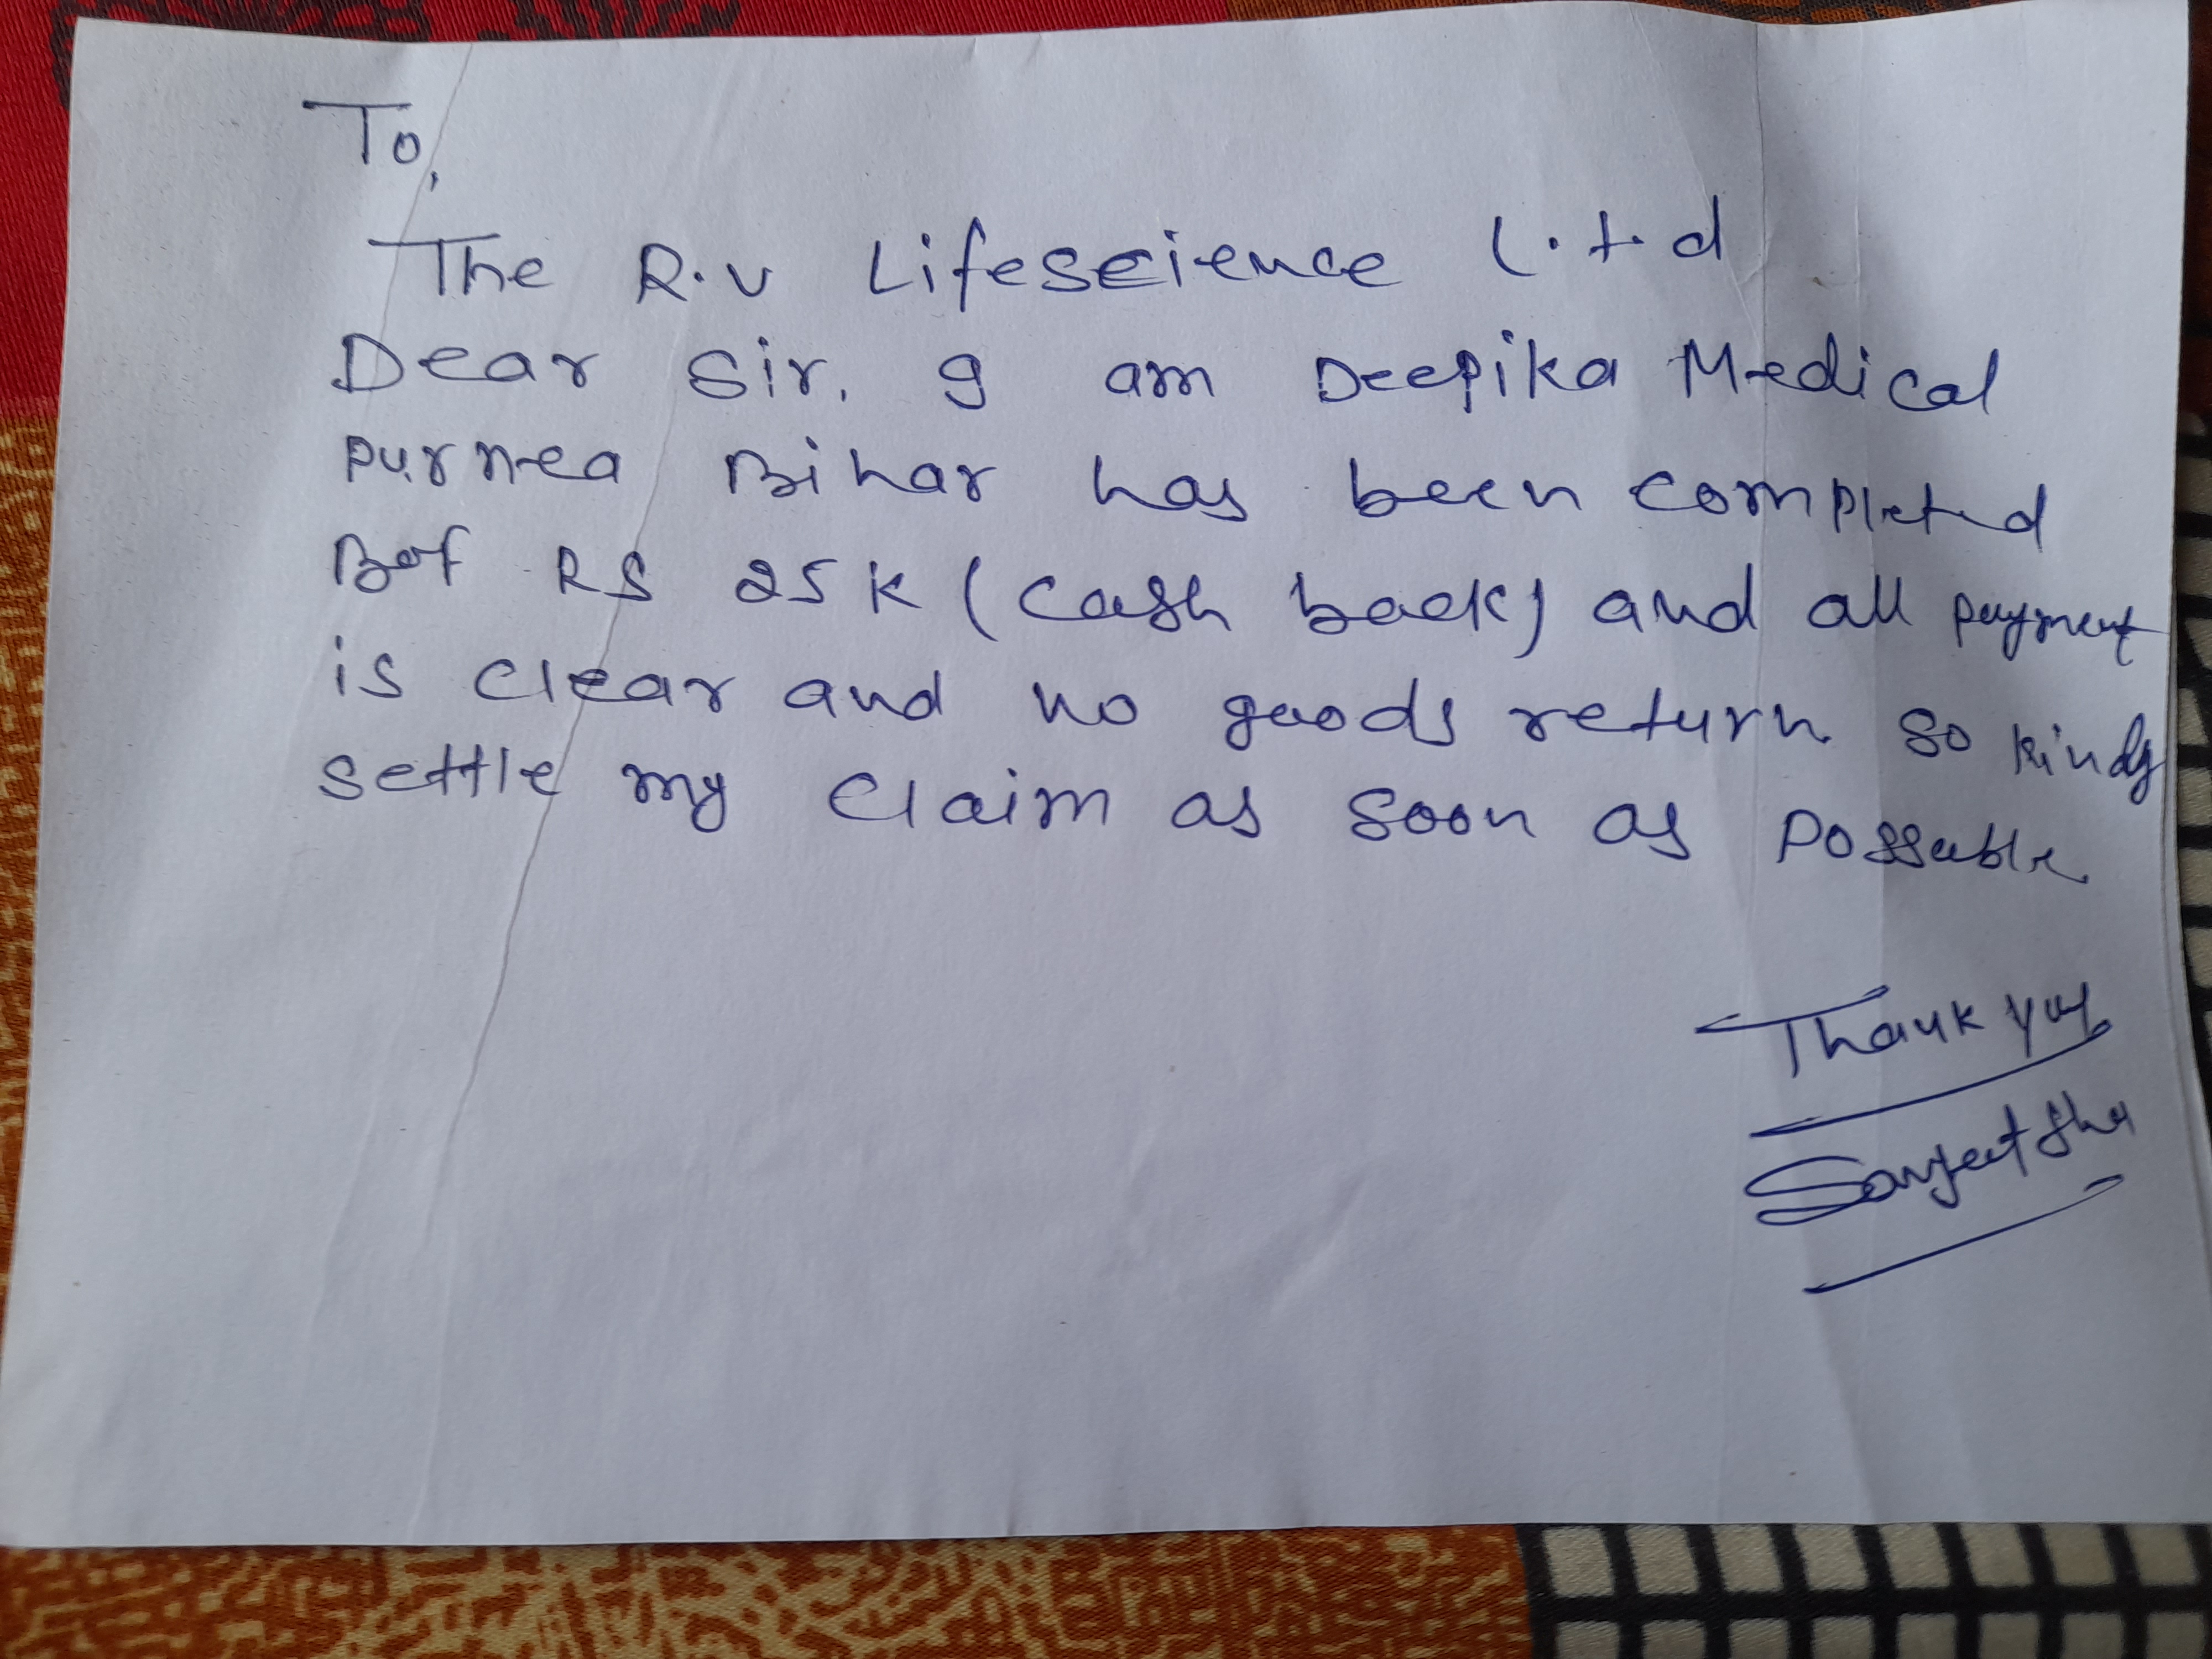 To,
The R.v Lifescience L.t.d
Dear Sir. I am Deepika Medical
Purnea Bihar has been completed
RS 25K (Cash back) and all payment
is clear and no goods return so kindly
settle my claim as soon as possable
Thank you